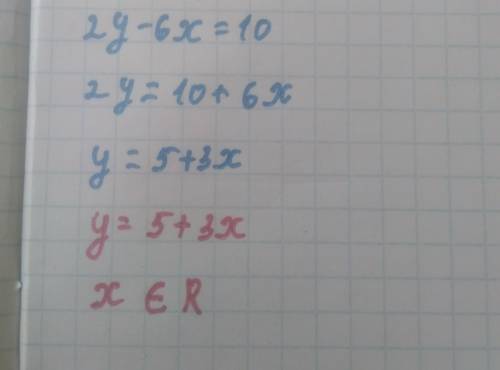 2y-6x=10
2y=10+6x
y=5+3x
y=5+3x
x∈R